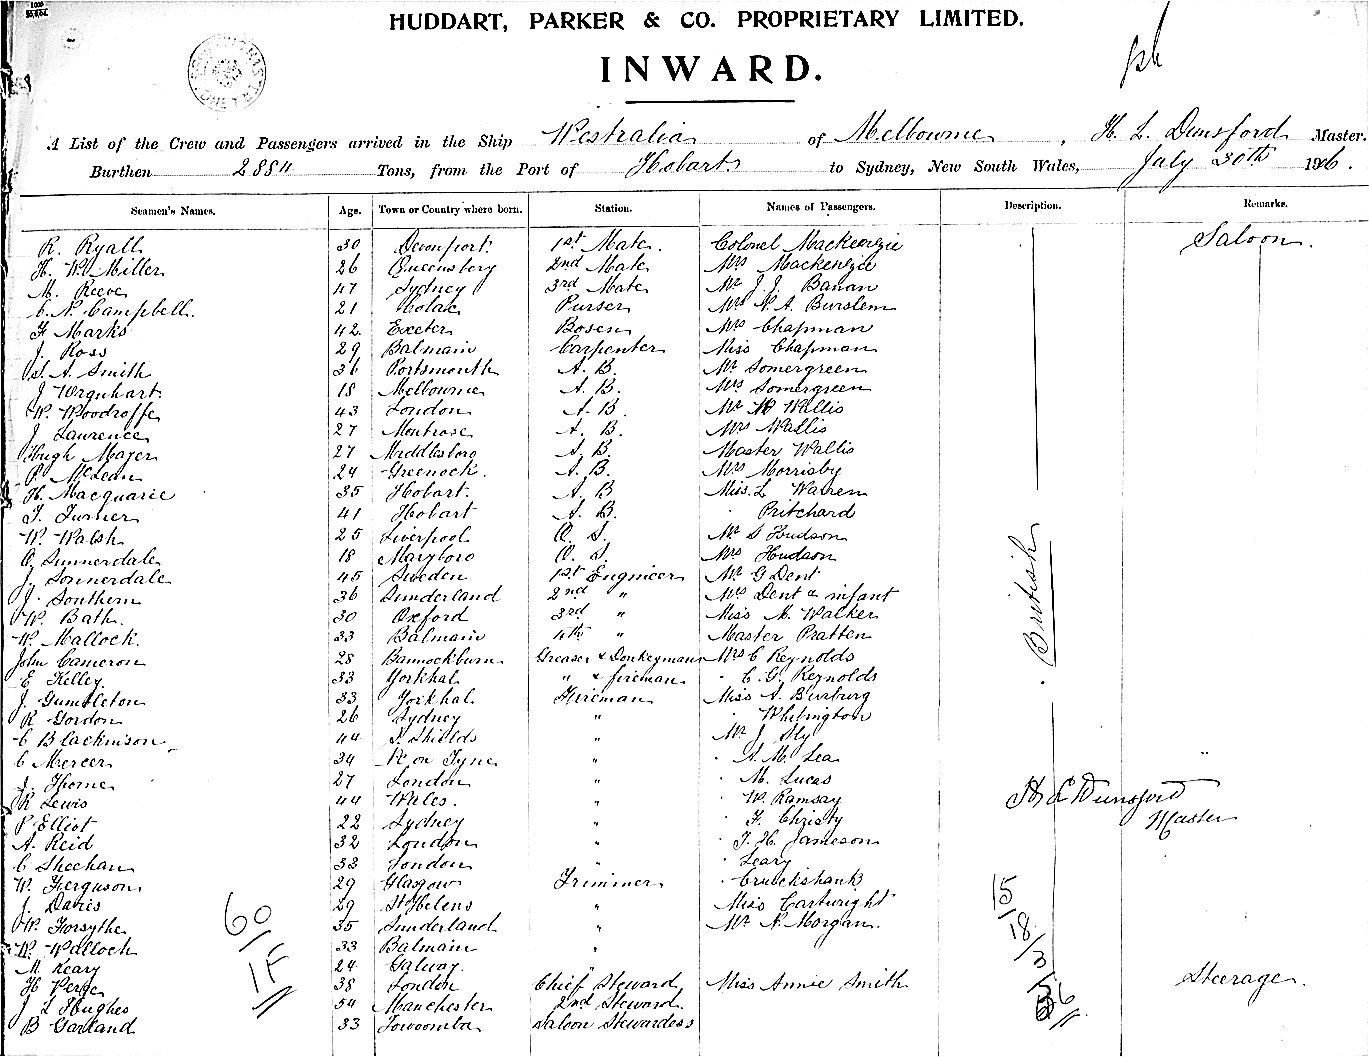 HUDDART, PARKER & CO. PROPRIETARY LIMITED.
INWARD.
A List of the Crew and Passengers arrived in the Ship Westralia of Melbourne, H. L. Dunsford Master.
Burthen 2884 Tons, from the Port of Hobart to Sydney, New South Wales, July 30th 1906.
Seamen's Names. Age. Town or Country where born. Station. Names of Passengers. Description. Remarks.
R. Ryall 30 Devonport 1st Mate. Colonel Mackenzie Saloon.
H. W. Miller 26 Queensbory 2nd Mate Mrs Mackenzie
M. Reeve 47 Sydney 3rd Mate Mr J. J. Banan
C. N. Campbell. 21 Colac Purser Mrs N. A. Burslem
F Marks 42 Exeter Bosen Mrs Chapman
J. Ross 29 Balmain Carpenter Miss Chapman
S. A. Smith 36 Portsmouth A. B. Mr Somergreen
J Urquhart 18 Melbourne A. B. Mrs Somergreen
W. Woodroffe 43 London A. B. Mr W Wallis
J Lawrence 27 Montrose A. B. Mrs Wallis
Hugh Mayer 27 Middlesboro A. B. Master Wallis
P. McLean 24 Greenock. A. B. Mrs Morrisby
H. Macquarie 35 Hobart. A. B Miss. L Warren
T. Turner 41 Hobart A. B. " Pritchard
W. Walsh 25 Liverpool O. S. Mr S Hudson
O. Sunnerdale 18 Maryboro O. S. Mrs Hudson
J. Sonnerdale 45 Sweden 1st Engineer Mr G Dent
J. Southern 36 Sunderland 2nd " Mrs Dent & infant
W. Bath. 30 Oxford 3rd " Miss M. Walker
W. Mallock. 33 Balmain 4th " Master Pratten
British
John Cameron 28 Bannockburn Greaser & Donkeyman Mrs C Reynolds
E Kelley 33 Yorkhal " & fireman " C. G. Reynolds
J. Gumbleton 33 Yorkhal Fireman Miss A. Burburg
R Gordon 26 Sydney " " Whitington
C Blackinson 44 S. Shields " Mr J Sly
C Mercer 34 N on Tyne " " A. M. Lea
J. Thorne 27 London " " M. Lucas
R Lewis 44 Wales. " " W. Ramsay H L Dunsford
P. Elliot 22 Sydney " " F. Christy Master
A. Reid 32 London " " T. H. Jameson
C Sheehan 33 London " " Leary
W. Ferguson 29 Glasgow Trimmer " Cruickshank
J. Davis 29 St Helens " Miss Cartwright
W. Forsythe 35 Sunderland " Mr A. Morgan.
W. Walloch 33 Balmain "
M. Keary 24 Galway. "
H Perge 38 London Chief Steward Miss Annie Smith Steerage.
J. L Hughes 54 Manchester 2nd Steward.
B Garland 33 Towoomba Saloon Stewardess
60/1F
15/18/3